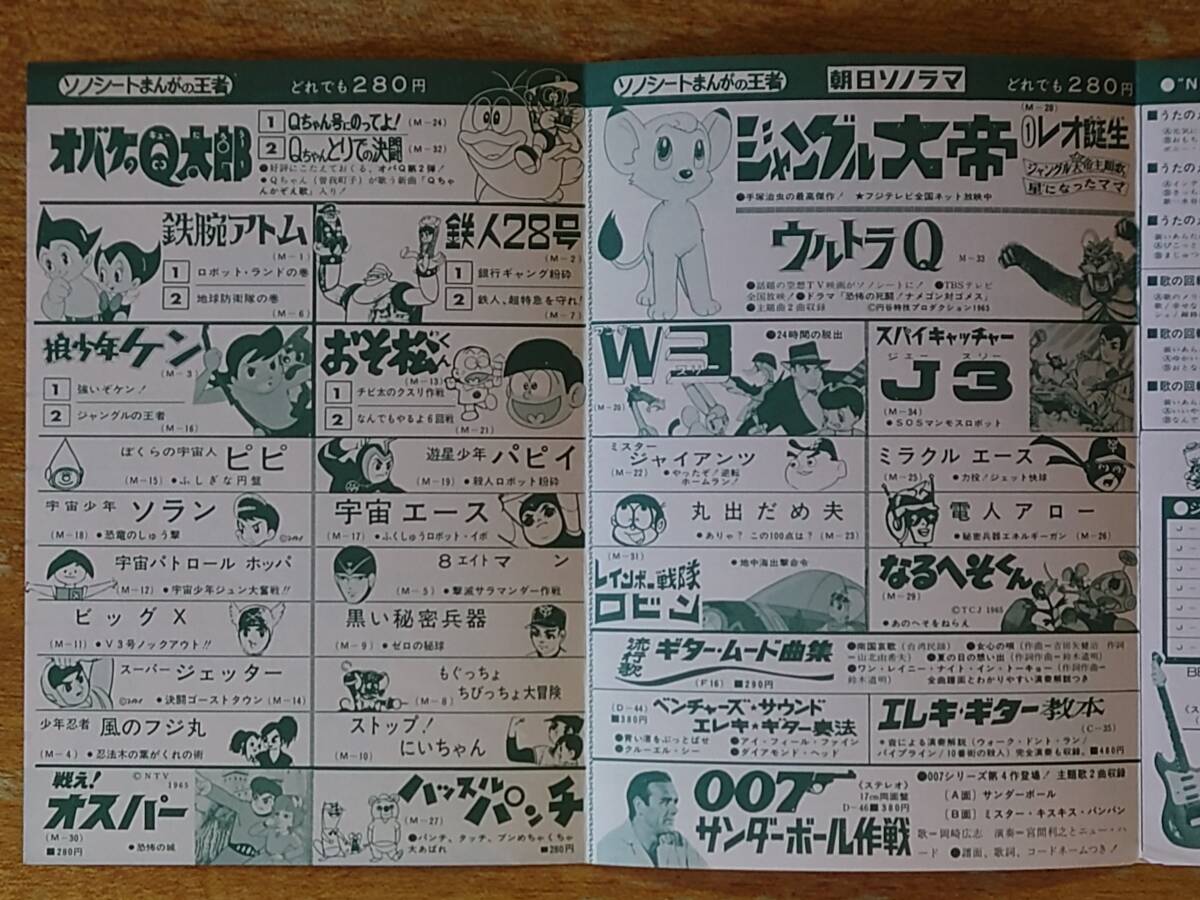 ソノシートまんがの王者 どれでも280円
オバケのQ太郎
1 Qちゃん号にのってよ! (M-24)
2 Qちゃんとりでの決闘 (M-32)
●好評にこたえておくる、オバQ第2弾!
●Qちゃん(曽我町子)が歌う新曲「Qちゃ
んかぞえ歌」入り!
鉄腕アトム
(M-1)
1 ロボット・ランドの巻
2 地球防衛隊の巻
(M-6)
鉄人28号
(M-2)
1 銀行ギャング粉砕
2 鉄人、超特急を守れ!
(M-7)
狼少年ケン
(M-3)
1 強いぞケン!
2 ジャングルの王者
(M-16)
おそ松くん
(M-13)
1 チビ太のクスリ作戦
2 なんでもやるよ6回戦
(M-21)
ぼくらの宇宙人 ピピ
(M-15) ●ふしぎな円盤
遊星少年 パピイ
(M-19) ●殺人ロボット粉砕
宇宙少年 ソラン
(M-18) ●恐竜のしゅう撃
宇宙エース
(M-17) ●ふくしゅうロボット・イボ
宇宙パトロール ホッパ
(M-12) ●宇宙少年ジュン大奮戦!!
8エイトマン
(M-5) ●撃滅サラマンダー作戦
ビッグX
(M-11) ●V3号ノックアウト!!
黒い秘密兵器
(M-9) ●ゼロの秘球
スーパー ジェッター
●決闘ゴーストタウン (M-14)
もぐっちょ
ちびっちょ大冒険
(M-8)
少年忍者 風のフジ丸
(M-4) ●忍法木の葉がくれの術
ストップ!
にいちゃん
(M-10)
戦え!
©NTV
1965
オスパー
(M-30)
■280円 ●恐怖の城
ハッスルパンチ
(M-27)
●パンチ、タッチ、ブンめちゃくちゃ
大あばれ ■280円
ソノシートまんがの王者 朝日ソノラマ どれでも280円
(M-28)
ジャングル大帝 ①レオ誕生
ジャングル大帝主題歌
星になったママ
●手塚治虫の最高傑作! ★フジテレビ全国ネット放映中
ウルトラQ M-33
●話題の空想TV映画がソノシートに! ●TBSテレビ
全国放映! ●ドラマ「恐怖の死闘/ナメゴン対ゴメス」
●主題曲2曲収録 ©円谷特技プロダクション1965
W3
●24時間の脱出
(M-20)
スパイキャッチャー
ジェー スリー
J3
(M-34)
●SOSマンモスロボット
ミスター
ジャイアンツ
(M-22) ●やったぞ!逆転
ホームラン!
ミラクル エース
(M-25) ●力投!ジェット快球
丸出だめ夫
●ありゃ? この100点は? (M-23)
電人アロー
●秘密兵器エネルギーガン (M-26)
(M-31)
レインボー戦隊
ロビン
●地中海出撃命令
なるへそくん
(M-29)
©TCJ 1965
●あのへそをねらえ
流行歌 ギター・ムード曲集
(F16) ■290円
●南国哀歌(台湾民謡) ●女心の唄(作曲=吉田矢健治 作詞
=山北由希夫) ●夏の日の想い出(作詞作曲=鈴木道明)
●ワン・レイニー・ナイト・イン・トーキョー(作詞作曲=
鈴木道明) 全曲譜面とわかりやすい演奏解説つき
(D-44)
■380円
ベンチャーズ・サウンド
エレキ★ギター奏法
●青い渚をぶっとばせ ●アイ・フィール・ファイン
●クルーエル・シー ●ダイアモンド・ヘッド
エレキ・ギター教本
(C-35)
●音による演奏解説(ウォーク・ドント・ラン/
パイプライン/10番街の殺人)完全演奏も収録。■480円
007
サンダーボール作戦
(ステレオ)
17cm両面盤
D-46■380円
●007シリーズ第4作登場! 主題歌2曲収録
〔A面〕サンダーボール
〔B面〕ミスター・キスキス・バンバン
歌=岡崎広志 演奏=宮間利之とニュー・ハ
ード ●譜面、歌詞、コードネームつき!
●"N
■うたの
■うたの
■うたの
■歌の回
■歌の回
■歌の回